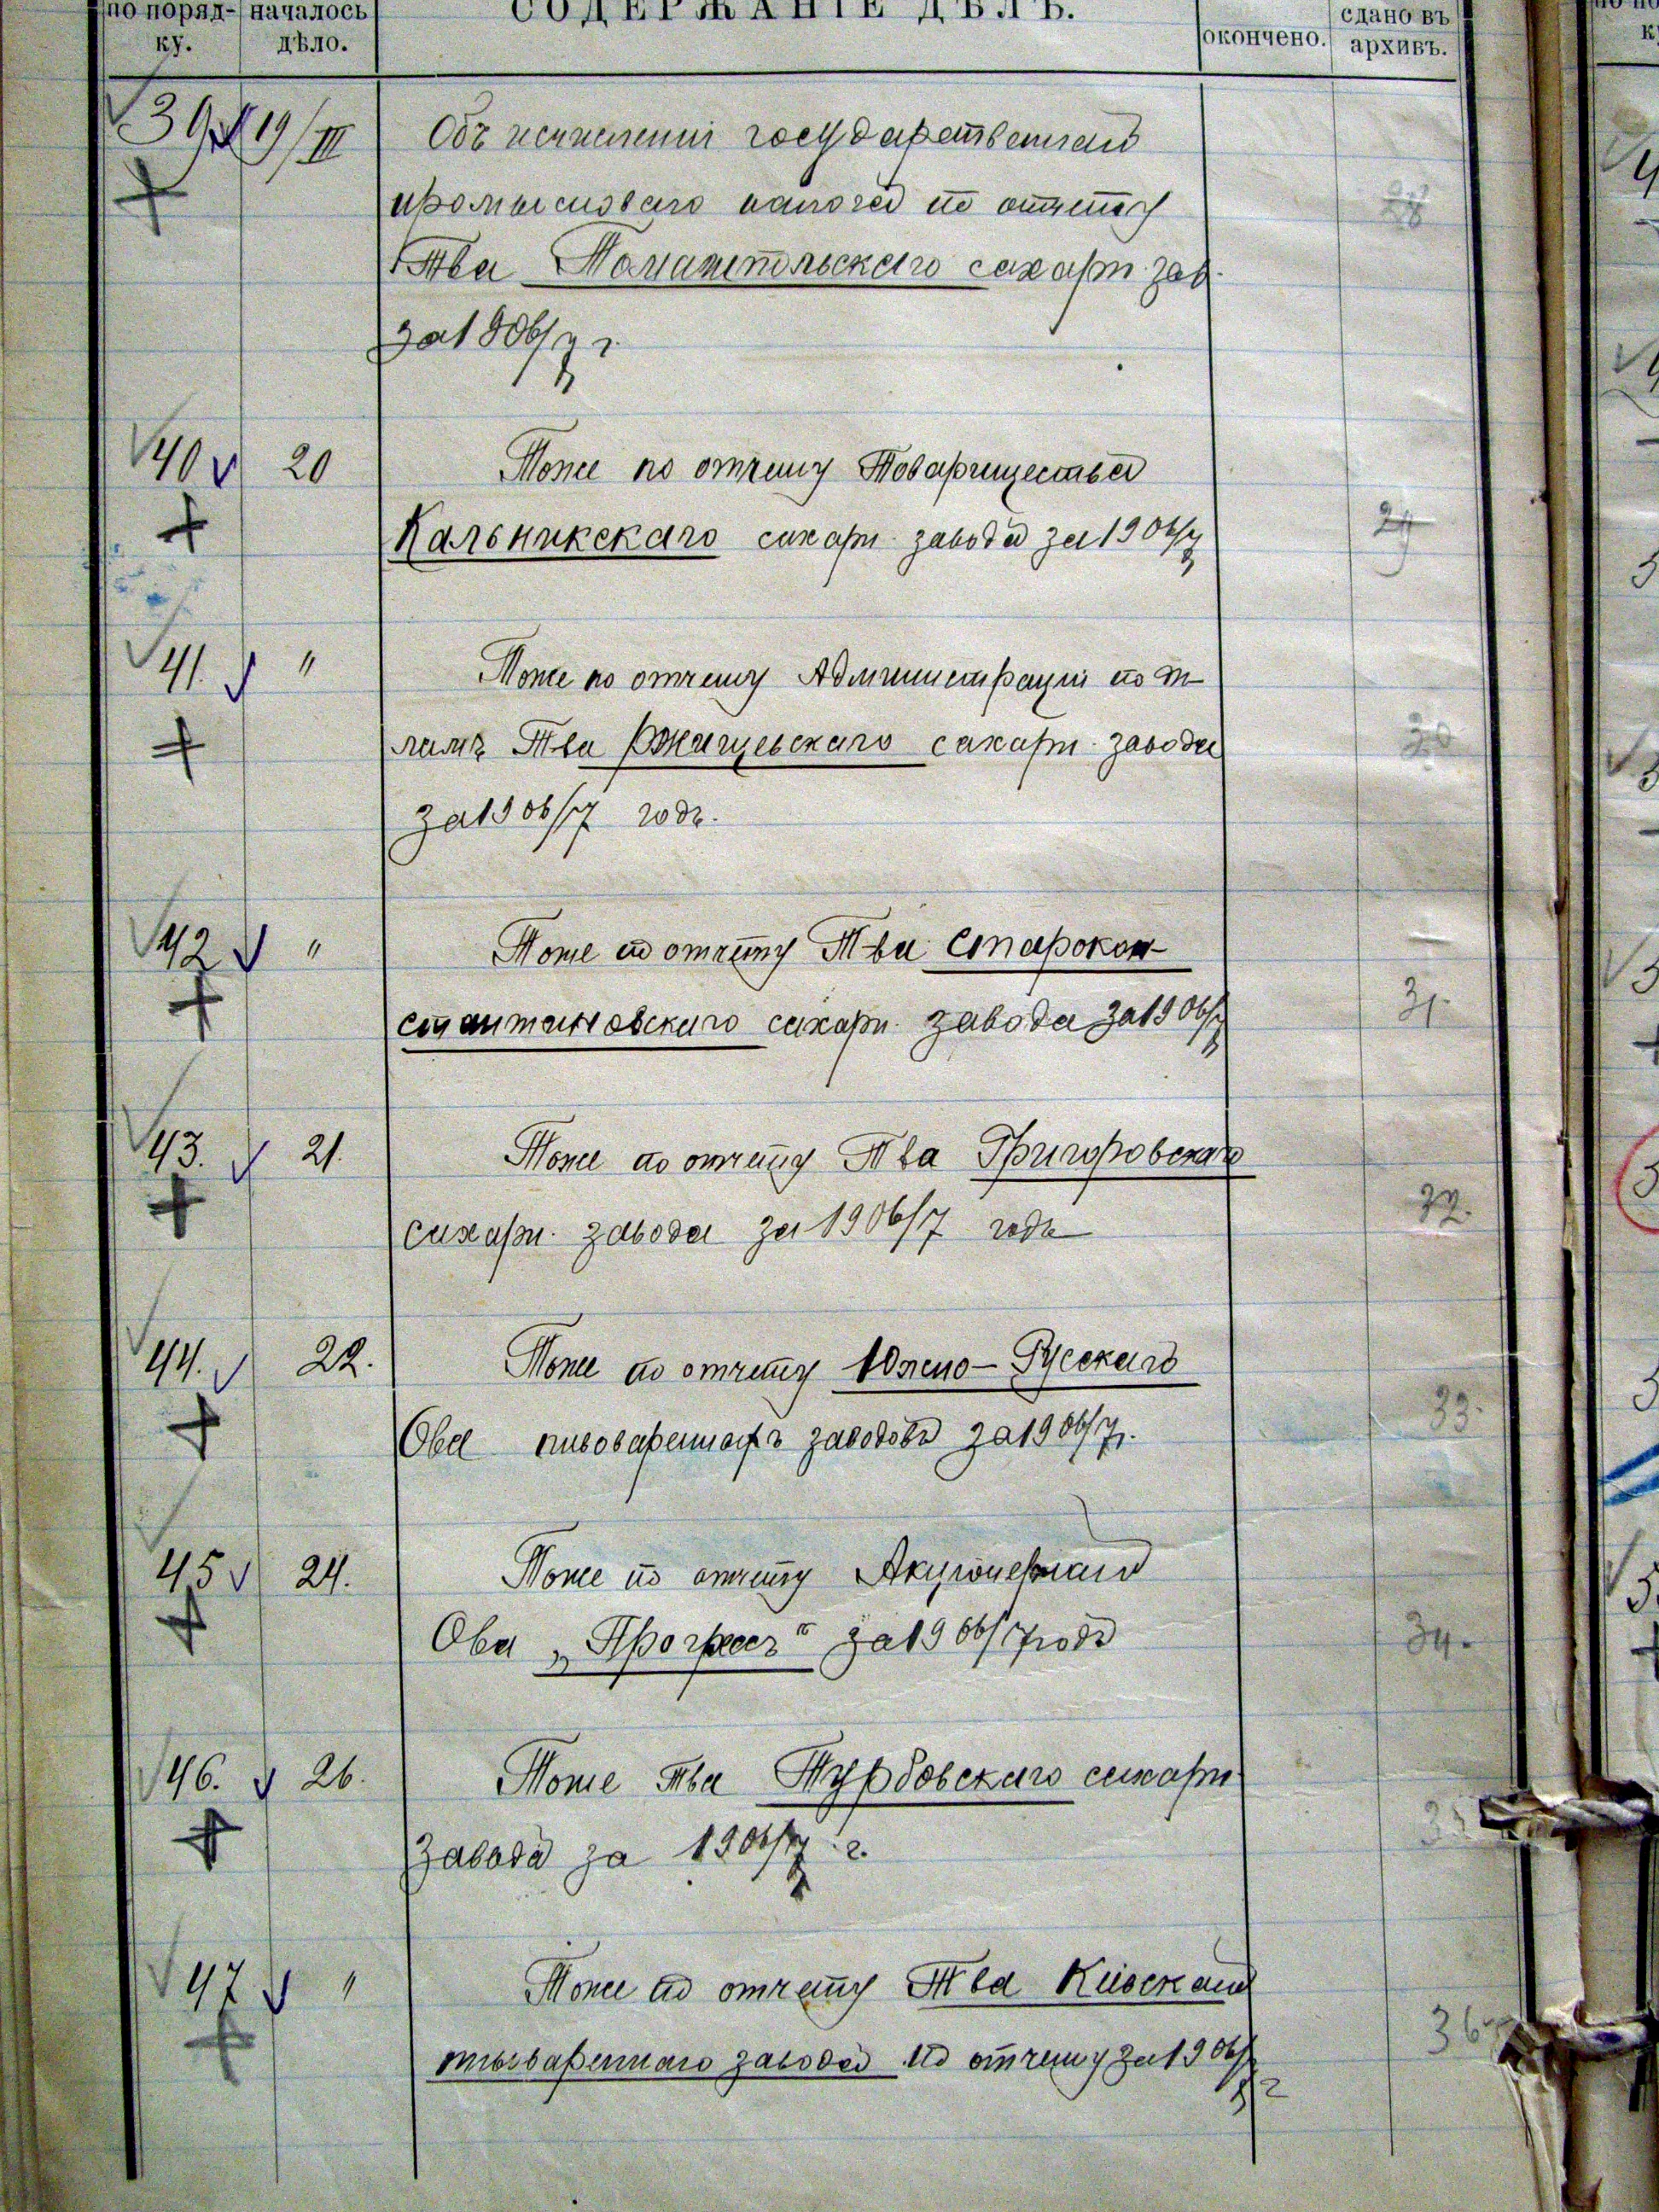 по поряд- началось СОДЕРЖАНІЕ ДѢЛЪ. окончено. сдано въ
ку. дѣло. архивъ.
39 19/III Объ исчисленіи государственнаго
промысловаго налога по отчету 28
Т-ва сахарн. зав.
за 1906/7 г.
40 20 Тоже по отчету Товарищества
Кальникскаго сахарн. завода за 1906/7 29
41. " Тоже по отчету Администраціи по дѣ-
ламъ Т-ва Ржищевскаго сахарн. завода 30
за 1906/7 годъ.
42 " Тоже по отчету Т-ва Старокон-
стантиновскаго сахарн. завода за 1906/7 31.
43. 21. Тоже по отчету Т-ва Григоровскаго
сахарн. завода за 1906/7 годъ 32.
44. 22. Тоже по отчету Южно-Русскаго
Ова пивоваренныхъ заводовъ за 1906/7 г. 33.
45 24. Тоже по отчету Акціонернаго
Ова „Прогрессъ" за 1906/7 годъ 34.
46. 26. Тоже Тва Турбовскаго сахарн.
завода за 1906/7 г. 35
47 " Тоже по отчету Т-ва Кіевскаго
пивовареннаго завода по отчету за 1906/7 г 36